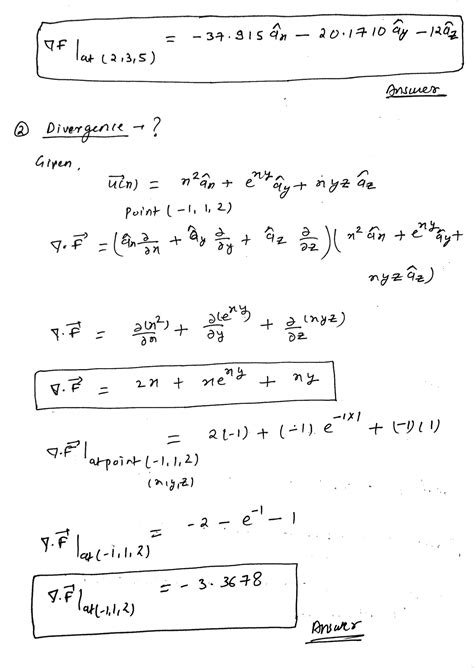 ∇F |at (2,3,5) = -37.915 âx - 20.1710 ây - 12âz
Answer
② Divergence → ?
Given,
u⃗(x) = x² âx + e^xy ây + xyz âz
point (-1, 1, 2)
∇.F⃗ = (âx ∂/∂x + ây ∂/∂y + âz ∂/∂z)(x² âx + e^xy ây +
xyz âz)
∇.F⃗ = ∂(x²)/∂x + ∂(e^xy)/∂y + ∂/∂z (xyz)
∇.F⃗ = 2x + xe^xy + xy
∇.F⃗ |at point (-1,1,2) = 2(-1) + (-1) e^-1×1 + (-1)(1)
(x,y,z)
∇.F⃗ |at(-1,1,2) = -2 - e^-1 - 1
∇.F⃗ |at(-1,1,2) = -3.3678
Answer